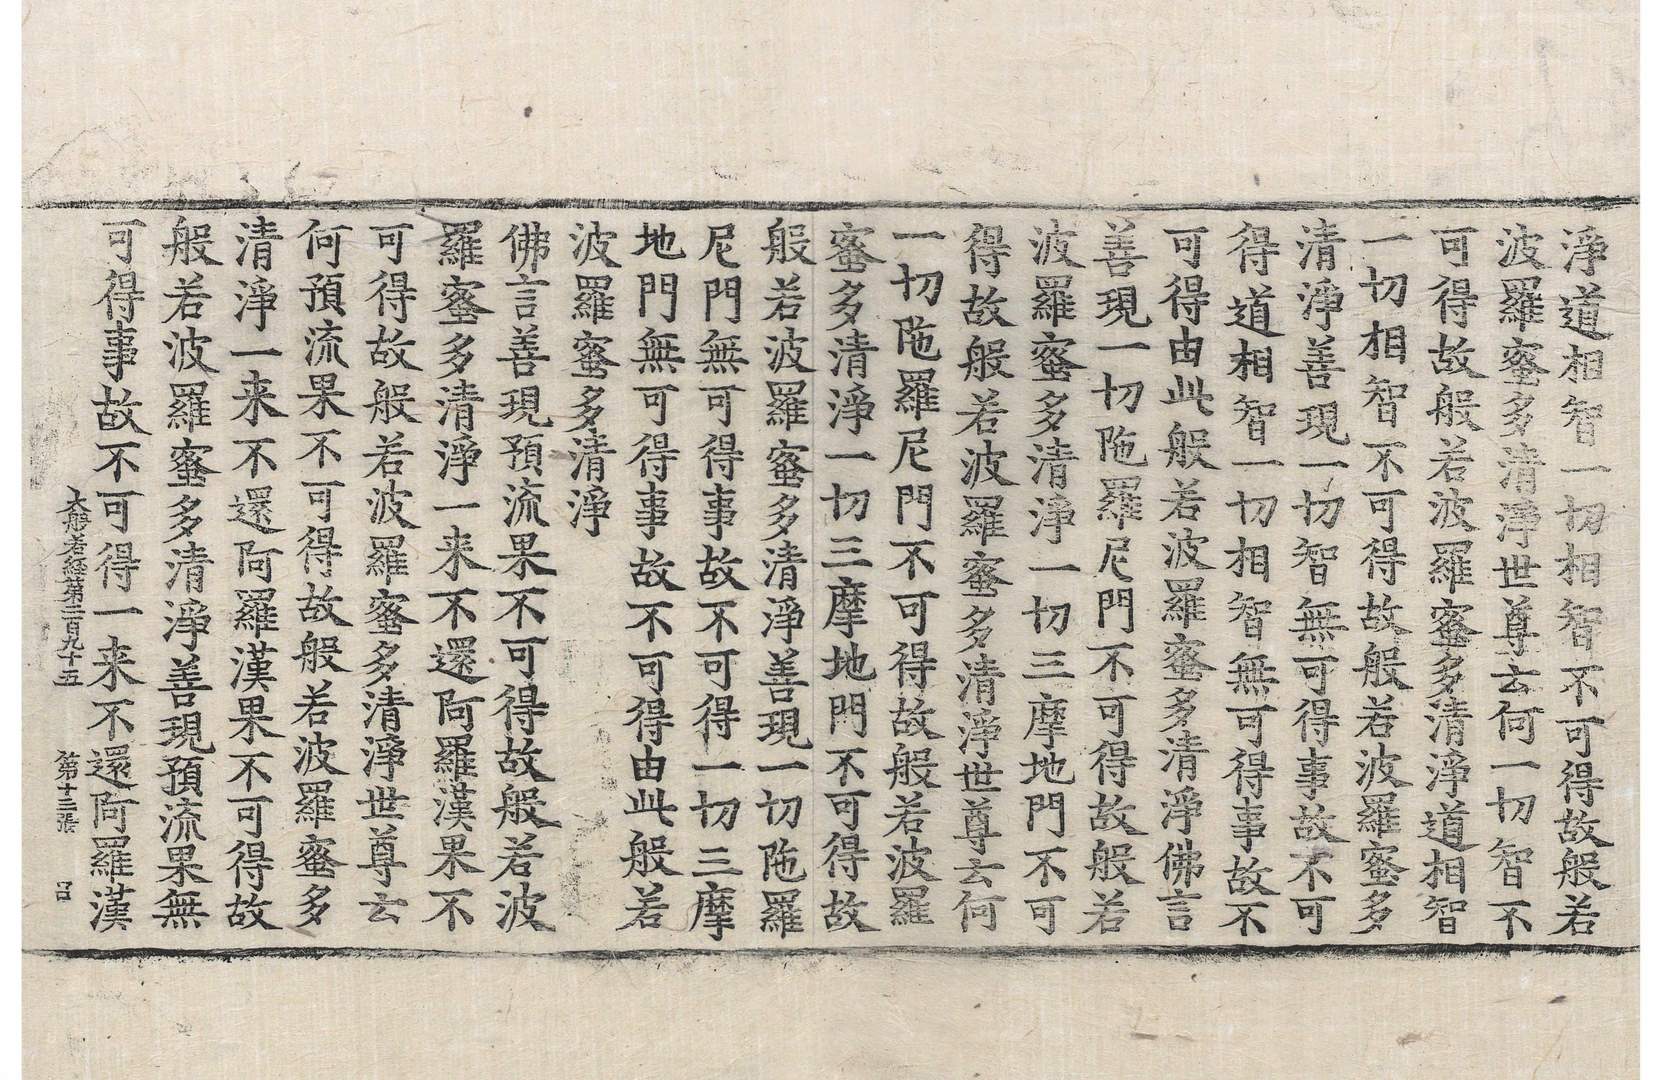 淨道相智一切相智不可得故般若
波羅蜜多清淨世尊云何一切智不
可得故般若波羅蜜多清淨道相智
一切相智不可得故般若波羅蜜多
清淨善現一切智無可得事故不可
得道相智一切相智無可得事故不
可得由此般若波羅蜜多清淨佛言
善現一切陁羅尼門不可得故般若
波羅蜜多清淨一切三摩地門不可
得故般若波羅蜜多清淨世尊云何
一切陁羅尼門不可得故般若波羅
蜜多清淨一切三摩地門不可得故
般若波羅蜜多清淨善現一切陁羅
尼門無可得事故不可得一切三摩
地門無可得事故不可得由此般若
波羅蜜多清淨
佛言善現預流果不可得故般若波
羅蜜多清淨一来不還阿羅漢果不
可得故般若波羅蜜多清淨世尊云
何預流果不可得故般若波羅蜜多
清淨一来不還阿羅漢果不可得故
般若波羅蜜多清淨善現預流果無
可得事故不可得一来不還阿羅漢
大般若経第二百九十五 第十三張 呂